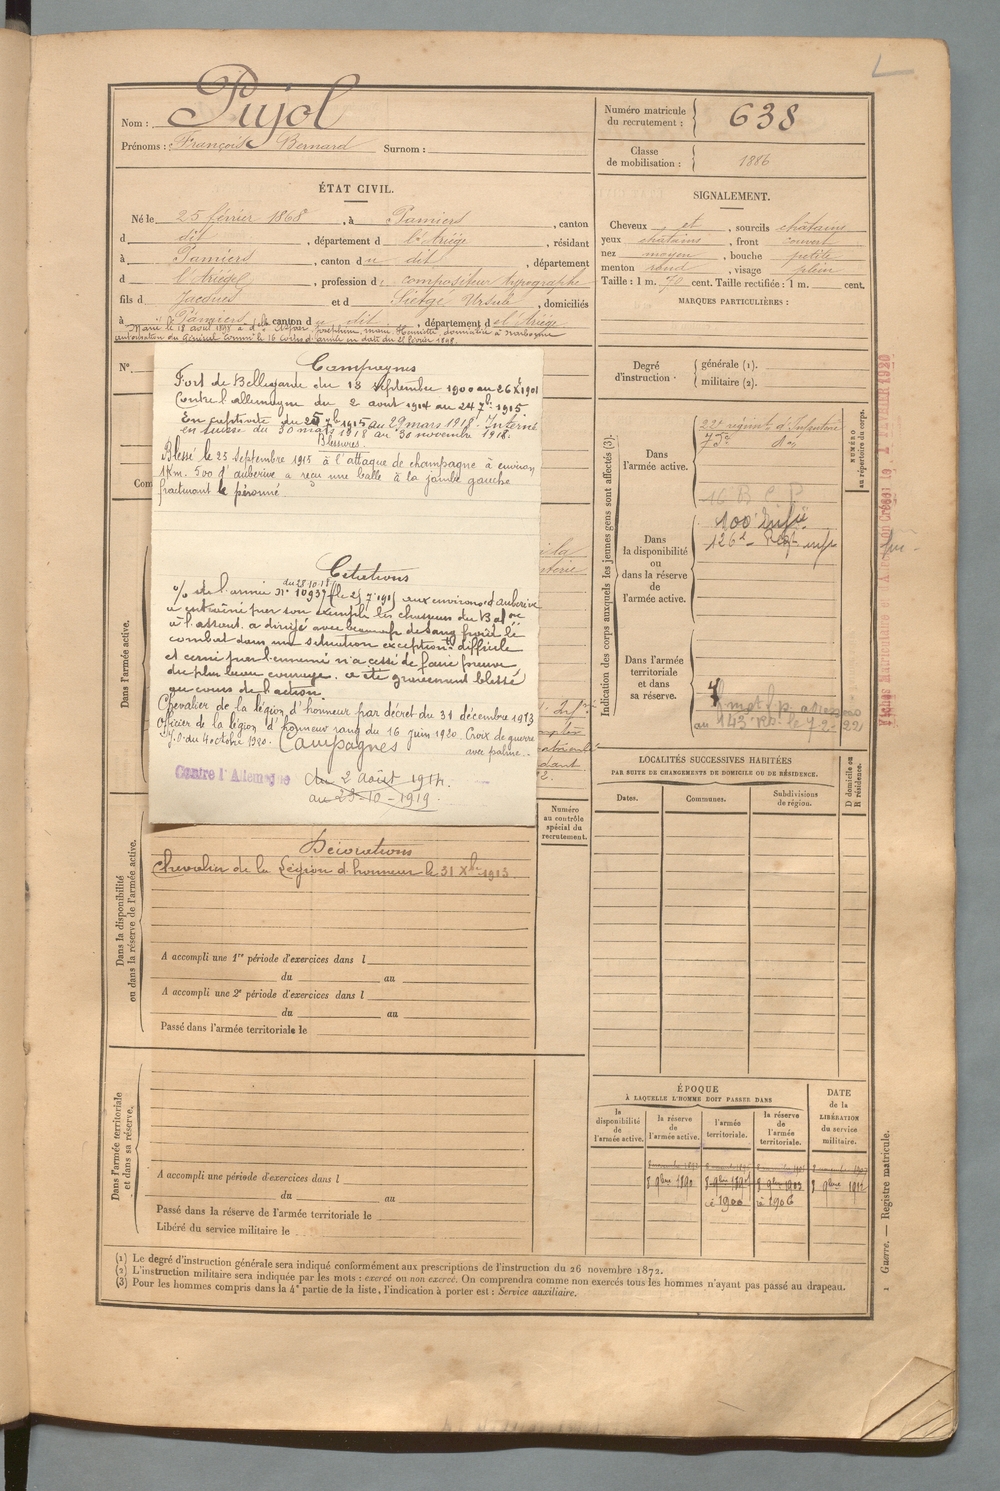 Nom : Pujol
Prénoms : François Bernard Surnom :
Numéro matricule du recrutement : 638
Classe de mobilisation : 1886
ÉTAT CIVIL.
Né le 25 février 1868, à Pamiers, canton
d dit, département d l'Ariége, résidant
à Pamiers, canton du dit, département
d l'Ariége, profession d compositeur typographe
fils d Jacques et d Ursule, domiciliés
à Pamiers canton du dit, département d el Ariége
SIGNALEMENT.
Cheveux et, sourcils châtains
yeux châtains, front couvert
nez moyen, bouche petite
menton rond, visage plein
Taille : 1 m. 70 cent. Taille rectifiée : 1 m. cent.
MARQUES PARTICULIÈRES :
Nº.
Campagnes
Fort de Bellegarde du 13 septembre 1900 au 26 Xe 1901
Contre l'allemagne du 2 aout 1914 au 24 7bre 1915.
En captivité du 25 7b 1915 au 29 mars 1918. Interné
en Suisse du 30 mars 1918 au 30 novembre 1918.
Blessures
Blessé le 25 septembre 1915 à l'attaque de champagne à environ
1Km. 500 d'auberive a reçu une balle à la jambe gauche
fracturant le péroné
Citations
du 28.10.19
de l'armée nº 10937 le 25 7 1915 aux environs d'auberive
a entrainé par son exemple les chasseurs du Baton
à l'assaut, a dirigé avec beaucoup de sang froid le
combat dans une situation exceptionnt difficile
et cerné par l'ennemi n'a cessé de faire preuve
du plus beau courage. a été gravement blessé
au cours de l'action.
Chevalier de la légion d'honneur par décret du 31 décembre 1913
Officier de la légion d'honneur rang du 16 juin 1920. Croix de guerre
J.O. du 4 octobre 1920. avec palme.
Campagnes
Contre l'Allemagne du 2 août 1914.
au 23-10-1919.
Décorations
Chevalier de la Légion d'honneur le 31 Xbre 1913
Com
Dans l'armée active.
Dans la disponibilité
ou dans la réserve de l'armée active.
A accompli une 1re période d'exercices dans l
du au
A accompli une 2e période d'exercices dans l
du au
Passé dans l'armée territoriale le
Numéro
au contrôle
spécial du
recrutement.
Dans l'armée territoriale
et dans sa réserve.
A accompli une période d'exercices dans l
du au
Passé dans la réserve de l'armée territoriale le
Libéré du service militaire le
Degré
d'instruction :
générale (1).
militaire (2).
Indication des corps auxquels les jeunes gens sont affectés (3).
Dans
l'armée active.
22e régimt d'Infanterie
75e
16 B C P
Dans
la disponibilité
ou
dans la réserve
de
l'armée active.
100 Infie
126e Regt inf
Dans l'armée
territoriale
et dans
sa réserve.
au 143 le 7 2 22
NUMÉRO
au répertoire du corps.
LOCALITÉS SUCCESSIVES HABITÉES
PAR SUITE DE CHANGEMENTS DE DOMICILE OU DE RÉSIDENCE.
Dates.
Communes.
Subdivisions
de région.
D domicile ou
R résidence.
ÉPOQUE
À LAQUELLE L'HOMME DOIT PASSER DANS
la
disponibilité
de
l'armée active.
la réserve
de
l'armée active.
l'armée
territoriale.
la réserve
de
l'armée
territoriale.
DATE
de la
LIBÉRATION
du service
militaire.
8 9bre 1890 8 9bre 1903 8 9bre 1912
1900 1906
(1) Le degré d'instruction générale sera indiqué conformément aux prescriptions de l'instruction du 26 novembre 1872.
(2) L'instruction militaire sera indiquée par les mots : exercé ou non exercé. On comprendra comme non exercés tous les hommes n'ayant pas passé au drapeau.
(3) Pour les hommes compris dans la 4e partie de la liste, l'indication à porter est : Service auxiliaire.
1 Guerre. — Registre matricule.